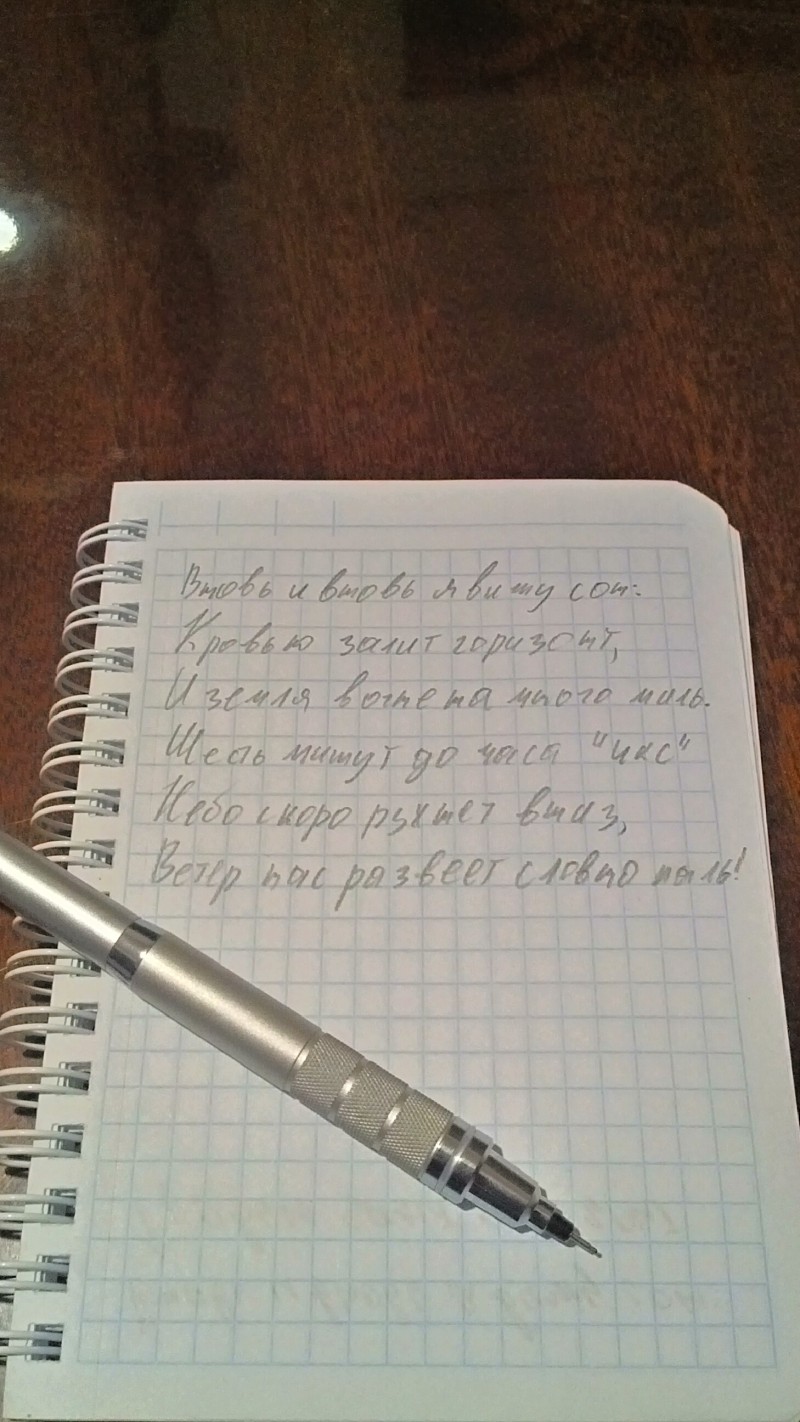 Вновь и вновь я вижу сон:
Кровью залит горизонт,
И земля в огне на много миль.
Шесть минут до часа "икс"
Небо скоро рухнет вниз,
Ветер нас развеет словно пыль!